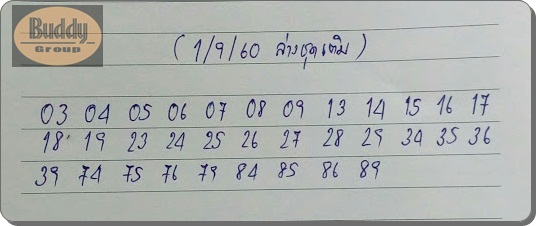 Buddy
Group
(1/9/60 ล่างชุดเต็ม)
03 04 05 06 07 08 09 13 14 15 16 17
18 19 23 24 25 26 27 28 29 34 35 36
39 74 75 76 79 84 85 86 89